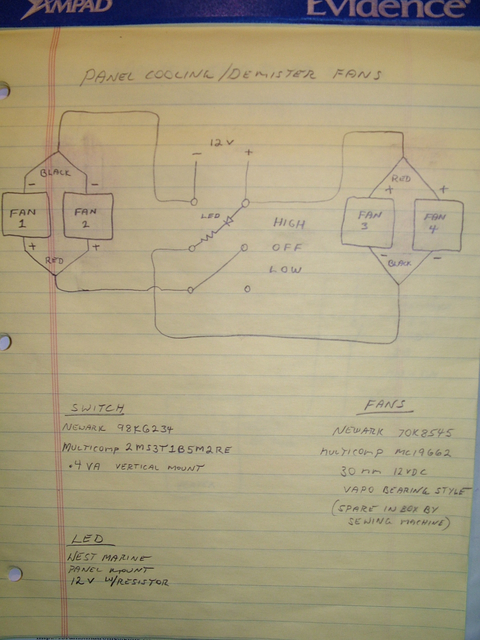 AMPAD
Evidence®
PANEL COOLING/DEMISTER FANS
12V
- +
BLACK
- -
FAN 1
FAN 2
+ +
RED
LED
HIGH
OFF
LOW
RED
+ +
FAN 3
FAN 4
- -
BLACK
SWITCH
NEWARK 98K6234
MULTICOMP 2MS3T1B5M2RE
.4 VA VERTICAL MOUNT
FANS
NEWARK 70K8545
MULTICOMP MC19662
30 mm 12VDC
VAPO BEARING STYLE
(SPARE IN BOX BY
SEWING MACHINE)
LED
WEST MARINE
PANEL MOUNT
12V W/RESISTOR